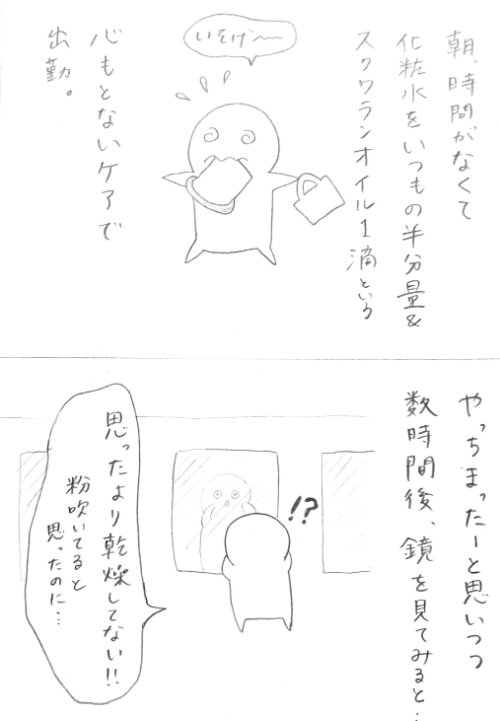 朝、時間がなくて
化粧水をいつもの半分量&
スクワランオイル1滴という
いそげ〜〜
心もとないケアで
出勤。
やっちまったーと思いつつ
数時間後、鏡を見てみると…
!?
思ったより乾燥してない!!
粉吹いてると
思ったのに…